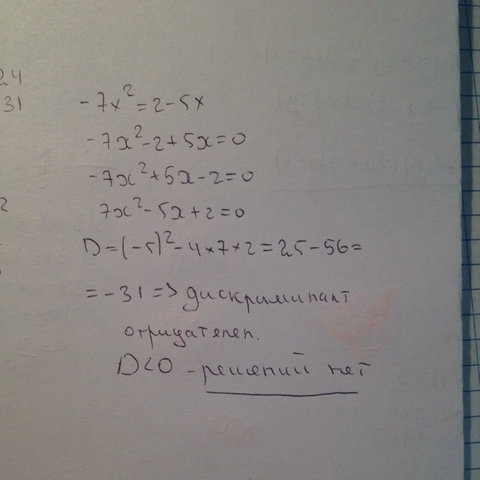 24
31
-7x²=2-5x
-7x²-2+5x=0
-7x²+5x-2=0
7x²-5x+2=0
D=(-5)²-4*7*2=25-56=
=-31=>дискриминант
отрицателен.
D<0 - решений нет
2